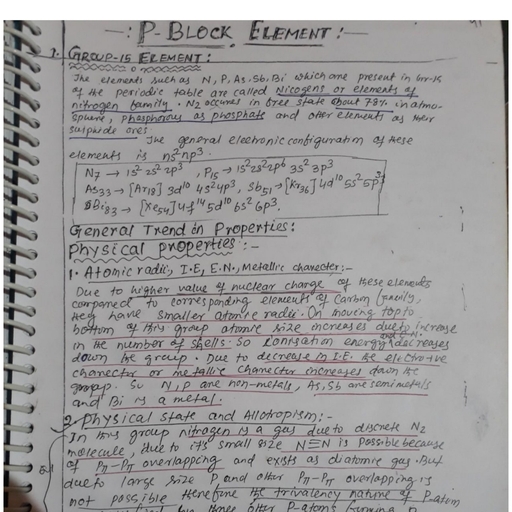 —: P-BLOCK ELEMENT :—
1. GROUP-15 ELEMENT:
The elements such as N, P, As, Sb, Bi which are present in Gr-15
of the periodic table are called Nicogens or elements of
nitrogen family. N2 occures in free state about 78% in atmo-
sphere, phosphorous as phosphate and other elements as their
sulphide ores.
The general electronic configuration of these
elements is ns²np³.
N7 → 1s² 2s² 2p³, P15 → 1s² 2s² 2p⁶ 3s² 3p³
As33 → [Ar18] 3d¹⁰ 4s² 4p³, Sb51 → [Kr36] 4d¹⁰ 5s² 5p³
Bi83 → [Xe54] 4f¹⁴ 5d¹⁰ 6s² 6p³.
General Trend in Properties:
Physical properties:-
1. Atomic radii, I.E, E.N., Metallic charecter:-
Due to higher value of nuclear charge of these elements
compared to corresponding elements of Carbon family,
they have smaller atomic radii. On moving top to
bottom of this group atomic size increases due to increase
in the number of shells. So Ionisation energy and E.N. decreases
down the group. Due to decrease in I.E. the electro+ve
charector or metallic charector increases down the
group. So N, P are non-metals, As, Sb are semimetals
and Bi is a metal.
2. Physical state and Allotropism:-
In this group nitrogen is a gas due to discrete N2
molecule, due to its small size N≡N is possible because
of Pπ-Pπ overlapping and exists as diatomic gas. But
due to large size P and other Pπ-Pπ overlapping is
not possible therefore the trivalency nature of P-atom
by three other P-atoms forming